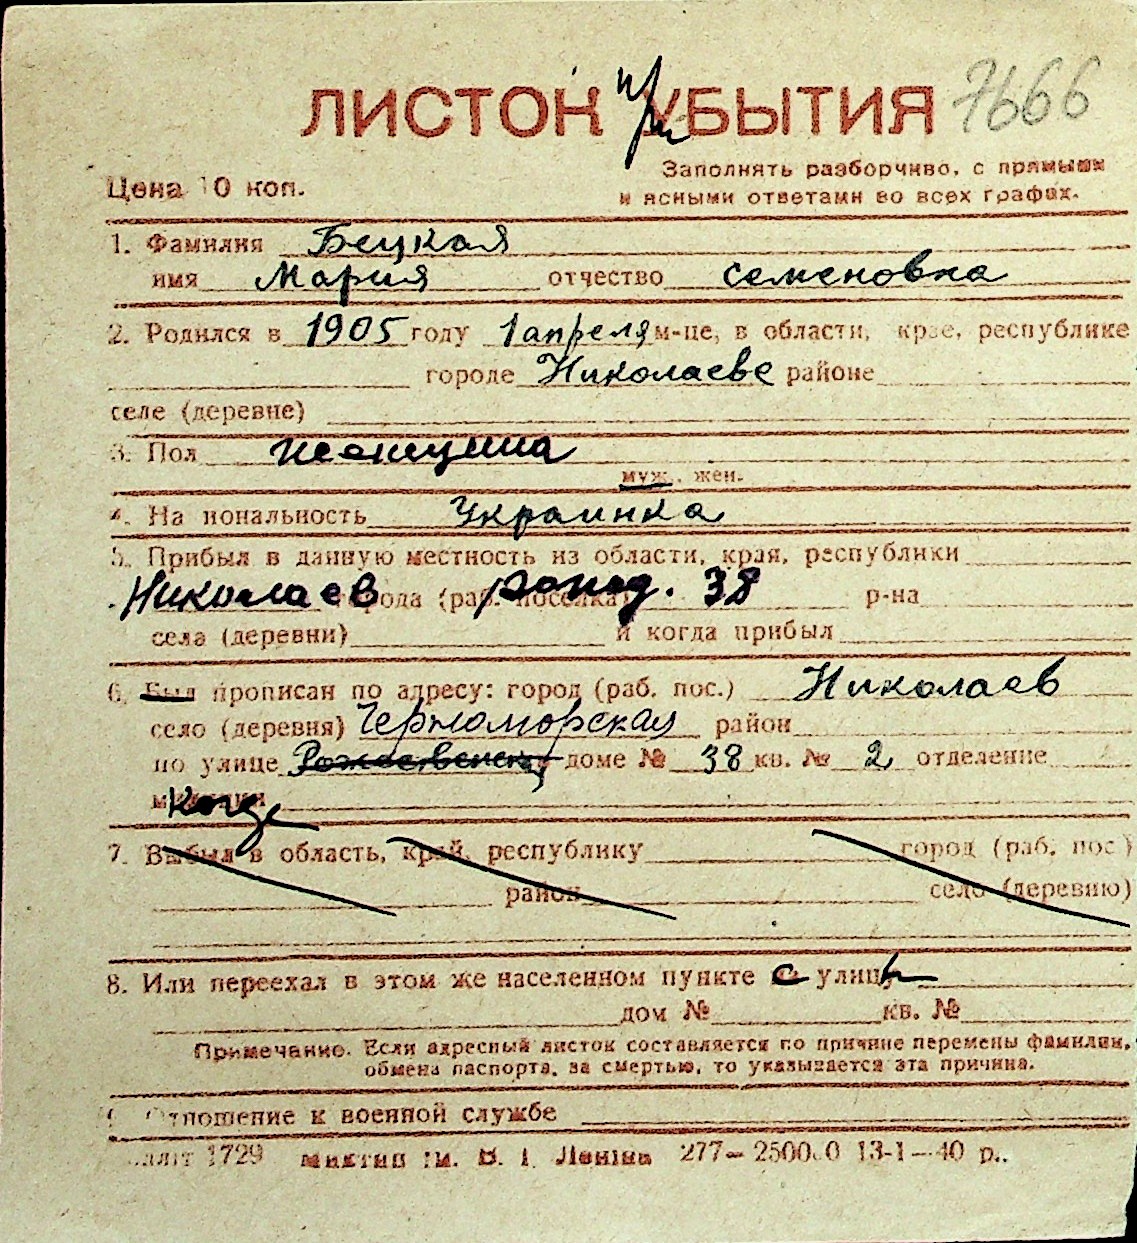 ЛИСТОК при УБЫТИЯ 7666
Цена 10 коп.
Заполнять разборчиво, с прямыми
и ясными ответами во всех графах.
1. Фамилия Бецкая
имя Мария отчество семеновна
2. Родился в 1905 году 1 апреля м-це, в области, крае, республике
городе Николаеве районе
селе (деревне)
3. Пол женщина
муж., жен.
4. На иональность Украинка
5. Прибыл в данную местность из области, края, республики
Николаев города (раб. поселка) 38 р-на
села (деревни) и когда прибыл
6. Был прописан по адресу: город (раб. пос.) Николаев
село (деревня) Черноморская район
по улице Рожественск доме № 38 кв. № 2 отделение
милиции
7. Выбыл в область, край, республику город (раб. пос)
район село (деревню)
8. Или переехал в этом же населенном пункте с улицы
дом № кв. №
Примечание. Если адресный листок составляется по причине перемены фамилии,
обмена паспорта, за смертью, то указывается эта причина.
Отношение к военной службе
1729 им. В. І. Леніна 277—2500.0 13-1—40 р..